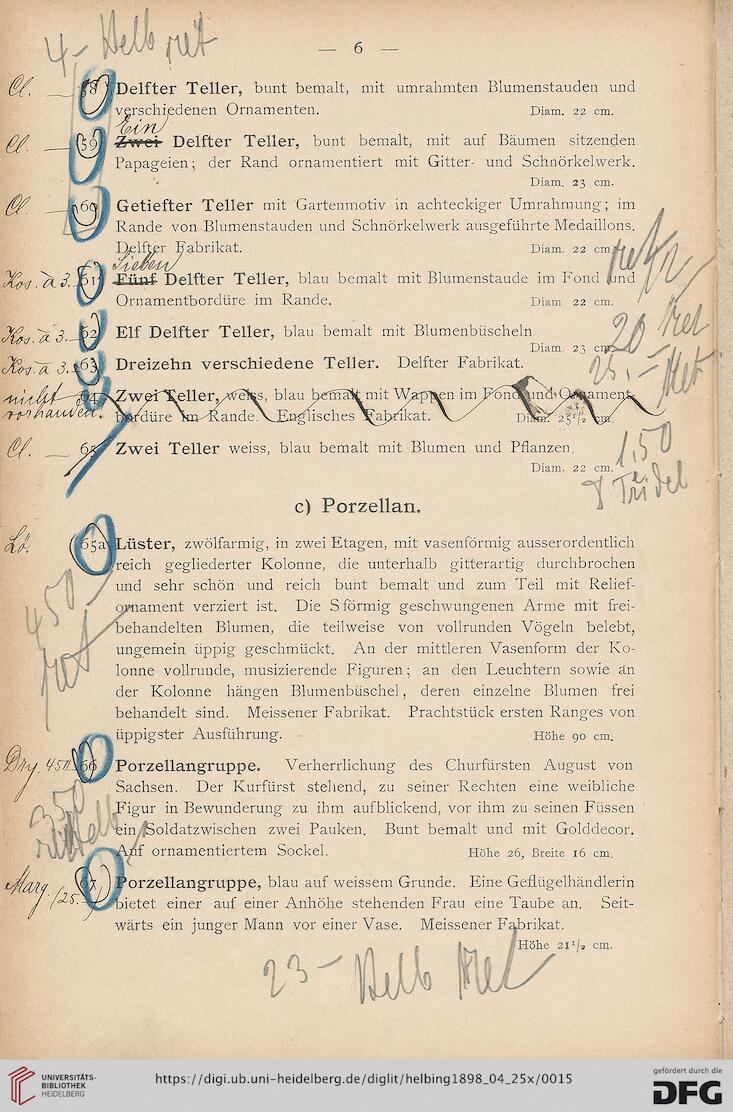 4.- Helb ret
— 6 —
Cl. — 58) Delfter Teller, bunt bemalt, mit umrahmten Blumenstauden und
verschiedenen Ornamenten. Diam. 22 cm.
Ein
Cl. — 59 Zwei Delfter Teller, bunt bemalt, mit auf Bäumen sitzenden
Papageien; der Rand ornamentiert mit Gitter- und Schnörkelwerk.
Diam. 23 cm.
Cl. — 60 Getiefter Teller mit Gartenmotiv in achteckiger Umrahmung; im
Rande von Blumenstauden und Schnörkelwerk ausgeführte Medaillons.
Delfter Fabrikat. Diam. 22 cm.
Sieben
Kos. à 3. 61 Fünf Delfter Teller, blau bemalt mit Blumenstaude im Fond und
Ornamentbordüre im Rande. Diam 22 cm.
Kos. à 3.- 62 Elf Delfter Teller, blau bemalt mit Blumenbüscheln
Diam. 23 cm. 20 ret
Kos. à 3.- 63 Dreizehn verschiedene Teller. Delfter Fabrikat. 25.-
nicht 64 Zwei Teller, weiss, blau bemalt mit Wappen im Fond und Ornament-
vorhanden. bordüre im Rande. Englisches Fabrikat. Diam. 25¹/₂ cm.
Cl. — 65 Zwei Teller weiss, blau bemalt mit Blumen und Pflanzen.
Diam. 22 cm. 1,50
c) Porzellan.
Lö. 65a Lüster, zwölfarmig, in zwei Etagen, mit vasenförmig ausserordentlich
reich gegliederter Kolonne, die unterhalb gitterartig durchbrochen
und sehr schön und reich bunt bemalt und zum Teil mit Relief-
ornament verziert ist. Die S förmig geschwungenen Arme mit frei-
behandelten Blumen, die teilweise von vollrunden Vögeln belebt,
ungemein üppig geschmückt. An der mittleren Vasenform der Ko-
lonne vollrunde, musizierende Figuren; an den Leuchtern sowie an
der Kolonne hängen Blumenbüschel, deren einzelne Blumen frei
behandelt sind. Meissener Fabrikat. Prachtstück ersten Ranges von
üppigster Ausführung. Höhe 90 cm.
450
ret
66 Porzellangruppe. Verherrlichung des Churfürsten August von
Sachsen. Der Kurfürst stehend, zu seiner Rechten eine weibliche
Figur in Bewunderung zu ihm aufblickend, vor ihm zu seinen Füssen
ein Soldatzwischen zwei Pauken. Bunt bemalt und mit Golddecor.
Auf ornamentiertem Sockel. Höhe 26, Breite 16 cm.
350
Helb
Marg. 67) Porzellangruppe, blau auf weissem Grunde. Eine Geflügelhändlerin
bietet einer auf einer Anhöhe stehenden Frau eine Taube an. Seit-
wärts ein junger Mann vor einer Vase. Meissener Fabrikat.
Höhe 21¹/₂ cm.
23 - Helb ret
UNIVERSITÄTS-
BIBLIOTHEK
HEIDELBERG
https://digi.ub.uni-heidelberg.de/diglit/helbing1898_04_25x/0015
gefördert durch die
DFG